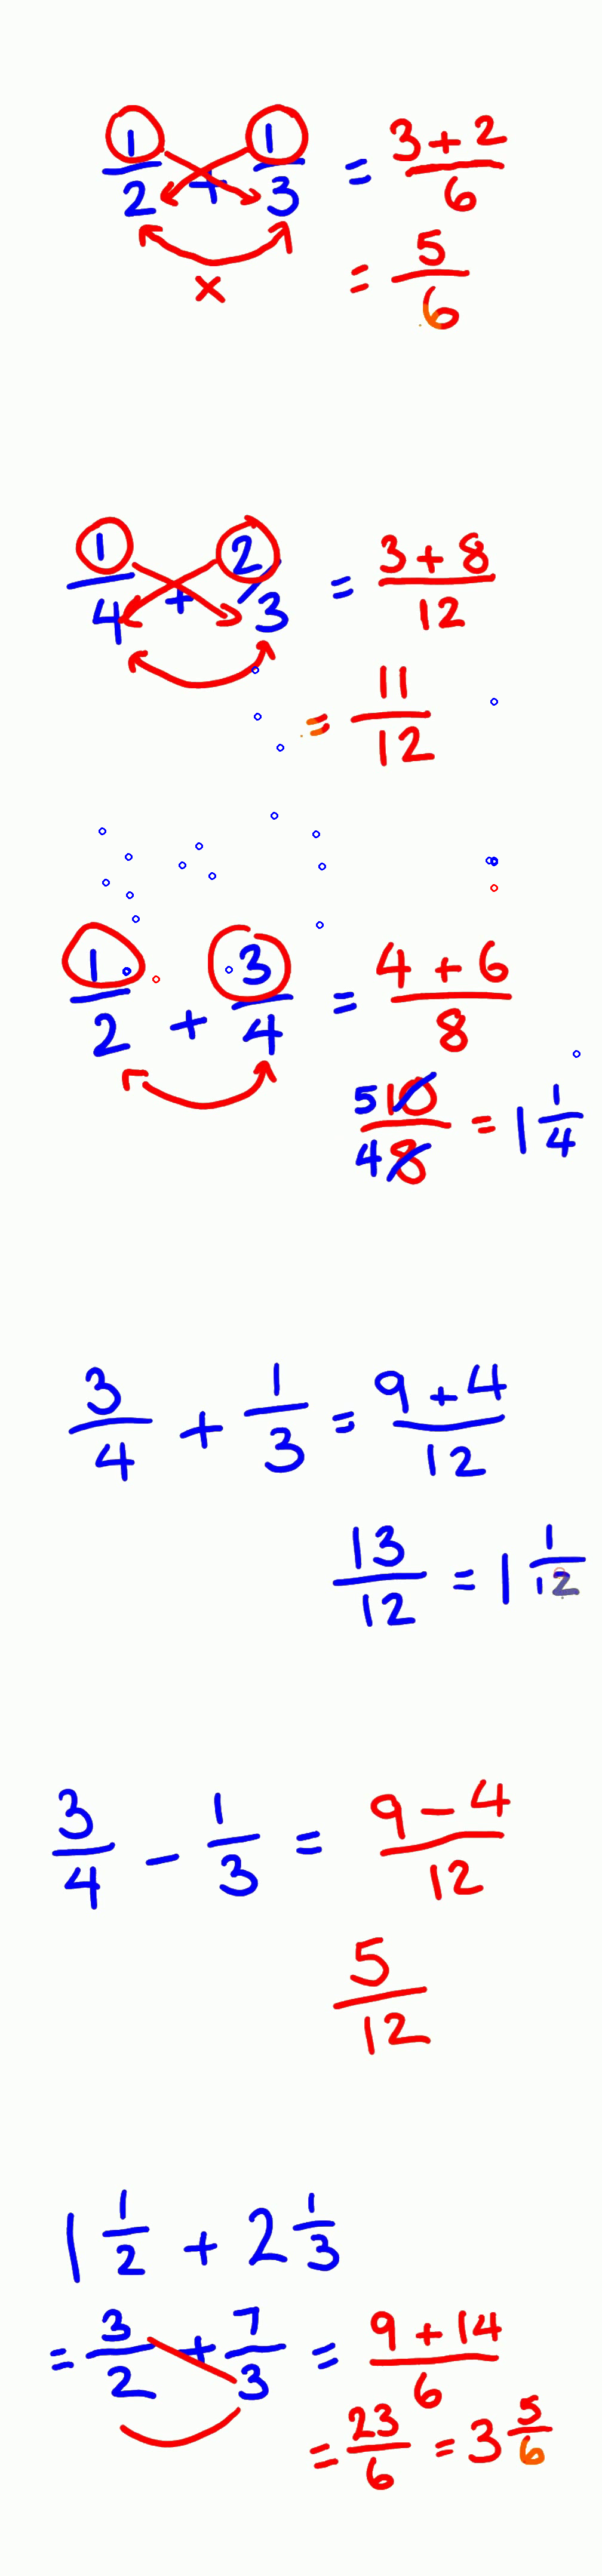 1/2 + 1/3 = 3 + 2/6
×
= 5/6
1/4 + 2/3 = 3 + 8/12
= 11/12
1/2 + 3/4 = 4 + 6/8
5 10/4 8 = 1 1/4
3/4 + 1/3 = 9 + 4/12
13/12 = 1 1/12
3/4 - 1/3 = 9 - 4/12
5/12
1 1/2 + 2 1/3
= 3/2 + 7/3 = 9 + 14/6
= 23/6 = 3 5/6